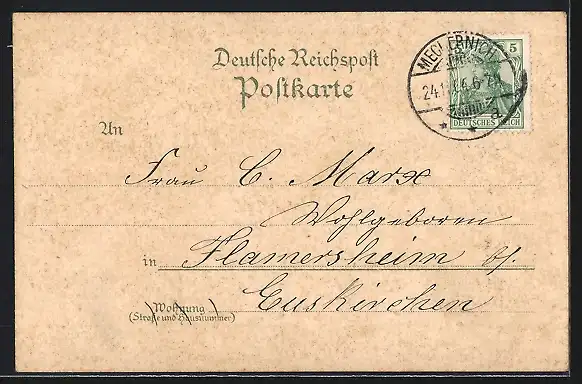 Deutsche Reichspost
Postkarte
MECHERNICH
5
24.1 6-7N
a
DEUTSCHES REICH
An
Frau C. Marx
Wohlgeboren
in Flamersheim b/
Euskirchen
Wohnung
(Straße und Hausnummer)